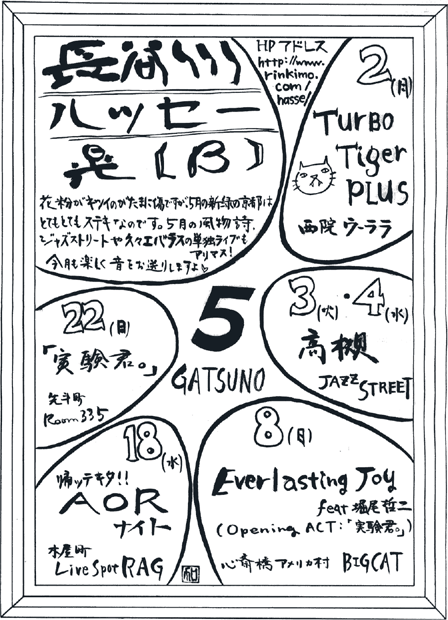 長谷川
ハッセー
晃(B)
HPアドレス
http://www.
rinkimo.
com/
hasse/
花粉がキツイのがたまに傷ですが、5月の新緑の京都は
とてもとてもステキなのです。5月の風物詩、
ジャズストリートや久々エバラスの単独ライブも
アリマス!
今月も楽しく音をお送りしますよ
2(月)
TURBO
Tiger
PLUS
西院ウーララ
3(火)・4(水)
高槻
JAZZ STREET
5
GATSUNO
22(日)
「実験君。」
先斗町
Room335
18(水)
帰ッテキタ!!
AOR
ナイト
木屋町
Live Spot RAG
8(日)
Everlasting Joy
feat 堀尾哲二
(Opening ACT:「実験君。」)
心斎橋アメリカ村 BIGCAT